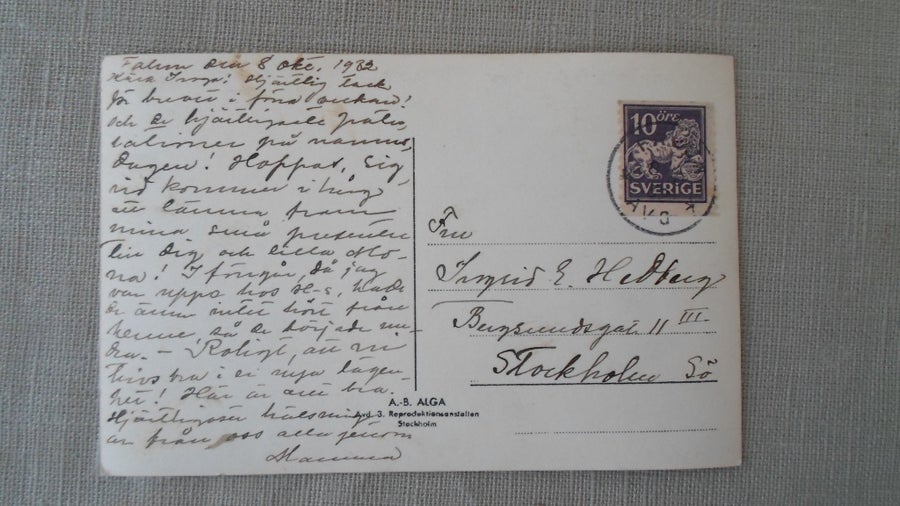 Falun den 8 Okt. 1932
Kära Inga! Hjärtlig tack
för brevet i förra veckan!
och de hjärtligaste gratu-
lationer på namns-
dagen! Hoppas, Sig-
rid kommer ihåg
att lämna fram
mina små presenter
till Dig och lilla Mo-
na! I förrgår, då jag
var uppe hos H-s, hade
de ännu intet hört från
henne, så de började un-
dra. - Roligt, att ni
trivs bra i er nya lägen-
het! Här är allt bra.
Hjärtligaste hälsning-
ar från oss alla genom
Mamma
10 ÖRE
SVERIGE
Fru
Ingrid E. Hedberg
Bergsundsgat 11 III
Stockholm Sö
A.-B. ALGA
Avd. 3. Reproduktionsanstalten
Stockholm